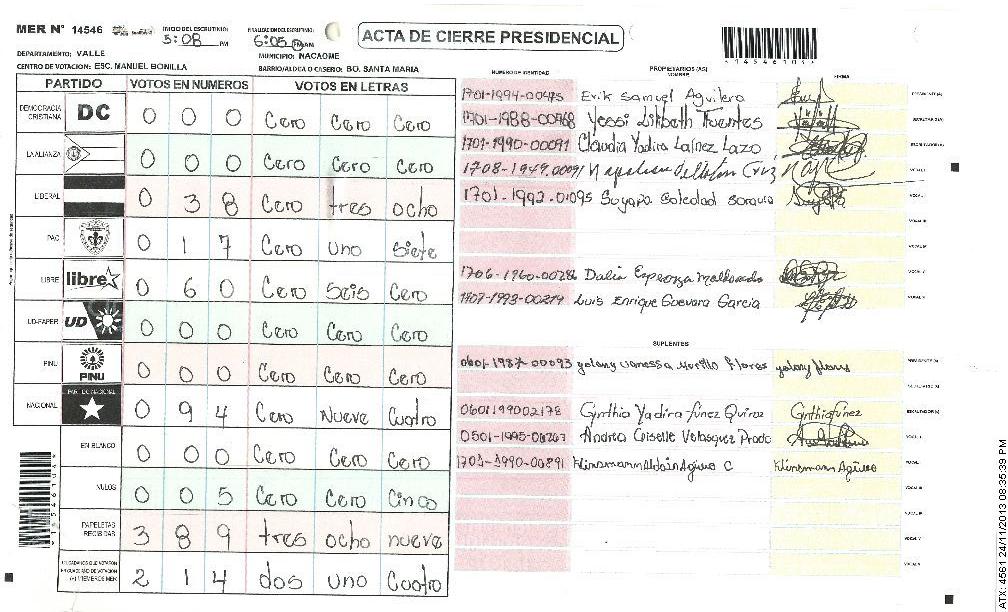 MER N° 14546 INICIO DEL ESCRUTINIO: 5:08 PM FINALIZACION DEL ESCRUTINIO: 6:05 PM AM
ACTA DE CIERRE PRESIDENCIAL
*1454610*
DEPARTAMENTO: VALLE MUNICIPIO: NACAOME
CENTRO DE VOTACION: ESC. MANUEL BONILLA BARRIO/ALDEA O CASERIO: BO. SANTA MARIA
PARTIDO VOTOS EN NUMEROS VOTOS EN LETRAS
DEMOCRACIA CRISTIANA DC 0 0 0 Cero Cero Cero
LA ALIANZA 0 0 0 Cero Cero Cero
LIBERAL 0 3 8 Cero tres ocho
PAC 0 1 7 Cero uno siete
LIBRE libre 0 6 0 Cero Seis Cero
UD-FAPER UD 0 0 0 Cero Cero Cero
PINU PINU 0 0 0 Cero Cero Cero
NACIONAL PARTIDO NACIONAL 0 9 4 Cero Nueve Cuatro
EN BLANCO 0 0 0 Cero Cero Cero
NULOS 0 0 5 Cero Cero Cinco
PAPELETAS RECIBIDAS 3 8 9 tres ocho nueve
CIUDADANOS QUE VOTARON 2 1 4 dos uno Cuatro
NUMERO DE IDENTIDAD PROPIETARIOS (AS) NOMBRE FIRMA
1701-1994-00475 Erik Samuel Aguilera PRESIDENTE(A)
1701-1988-00968 Yessi Lilibeth Fuentes SECRETARIO(A)
1701-1990-00091 Claudia Yadira Lainez Lazo ESCRUTADOR(A)
1708-1949-00091 Napoleon Cruz VOCAL I
1701-1992-01095 Suyapa Soledad VOCAL II
VOCAL III
VOCAL IV
1706-1960-00286 Dalia Esperanza Maldonado VOCAL V
1707-1993-00279 Luis Enrique Guevara Garcia
SUPLENTES
0601-1987-00093 yolany vanessa Murillo Flores yolany flores PRESIDENTE (A)
SECRETARIO (A)
0601199002178 Cynthia Yadira Funez Quiroz Cynthia Funez ESCRUTADOR(A)
0501-1995-00767 Andrea Giselle Velasquez Prado VOCAL I
1709-1990-00891 Klinsmann C Klinsmann
VOCAL III
VOCAL IV
VOCAL V
ATX: 4561 24/11/2013 08:35:39 PM